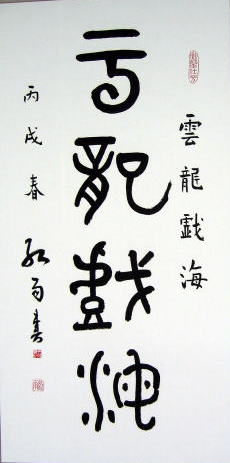 雲龍戲海
雲龍戲海
丙戌春
書